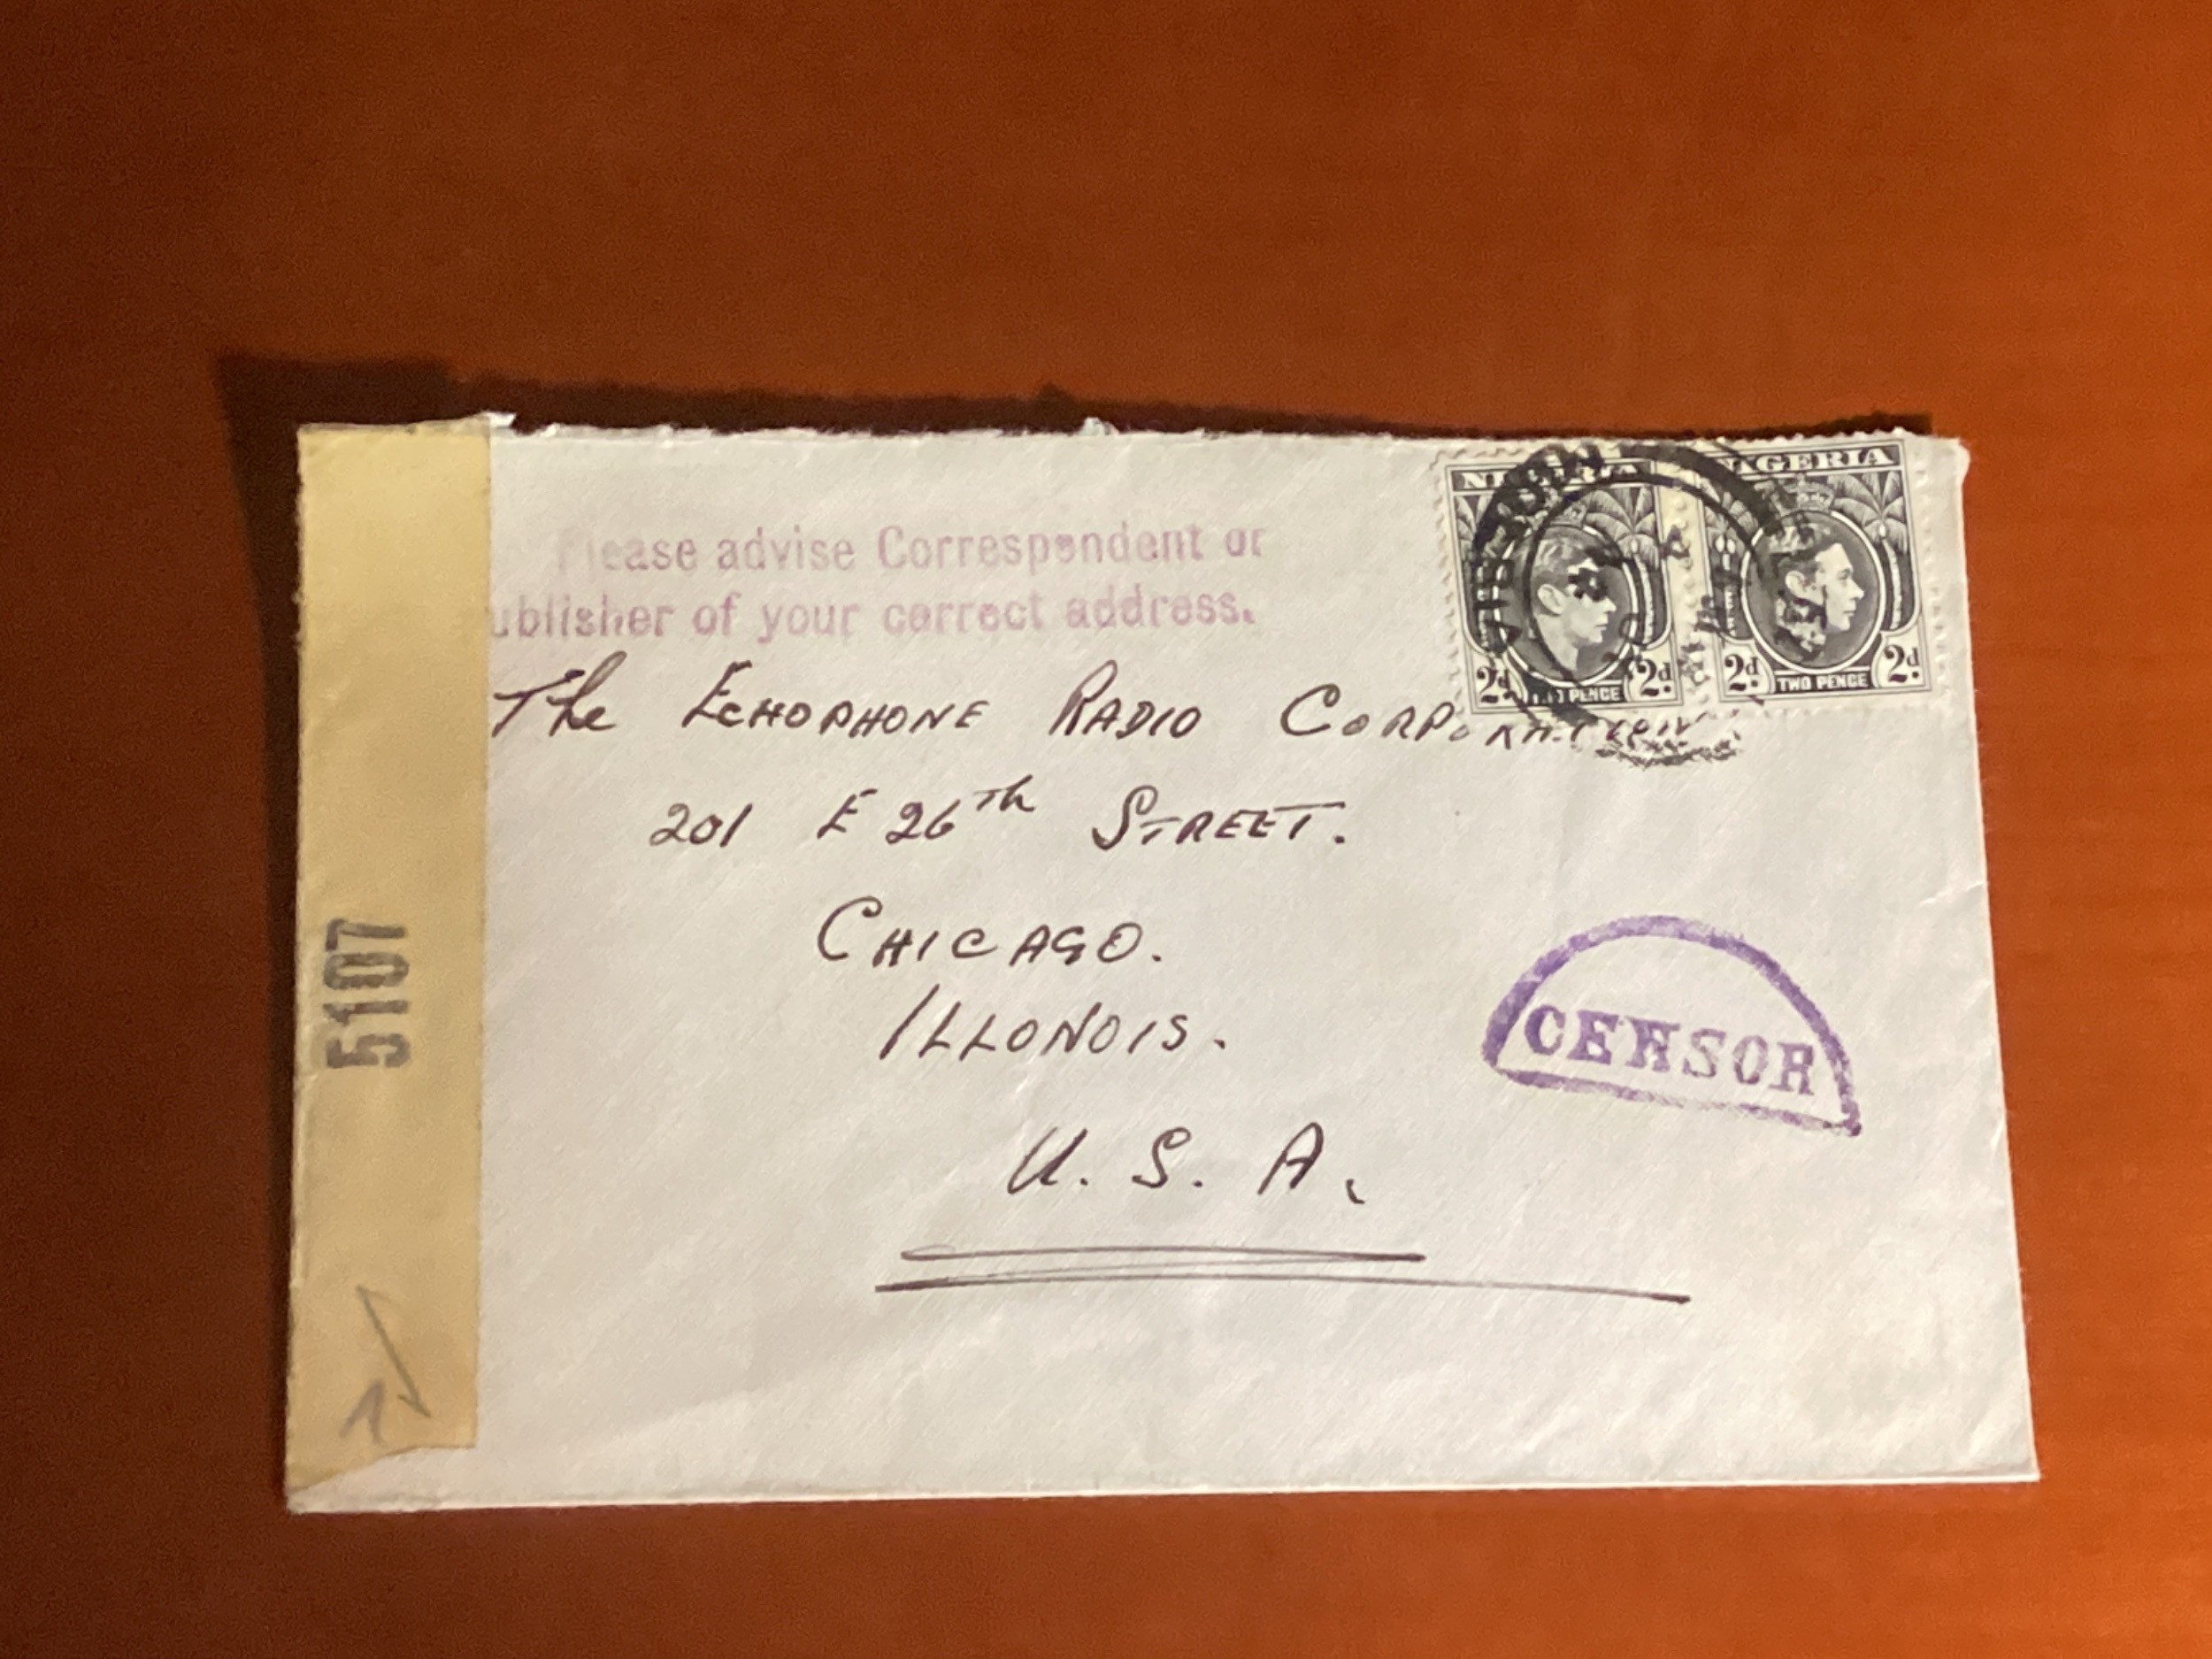 NIGERIA NIGERIA
Please advise Correspondent or
ublisher of your correct address.
2d 2d 2d 2d
PENCE TWO PENCE
The Echophone Radio Corporation
201 E 26th Street.
Chicago.
Illonois.
U. S. A.
CENSOR
5107